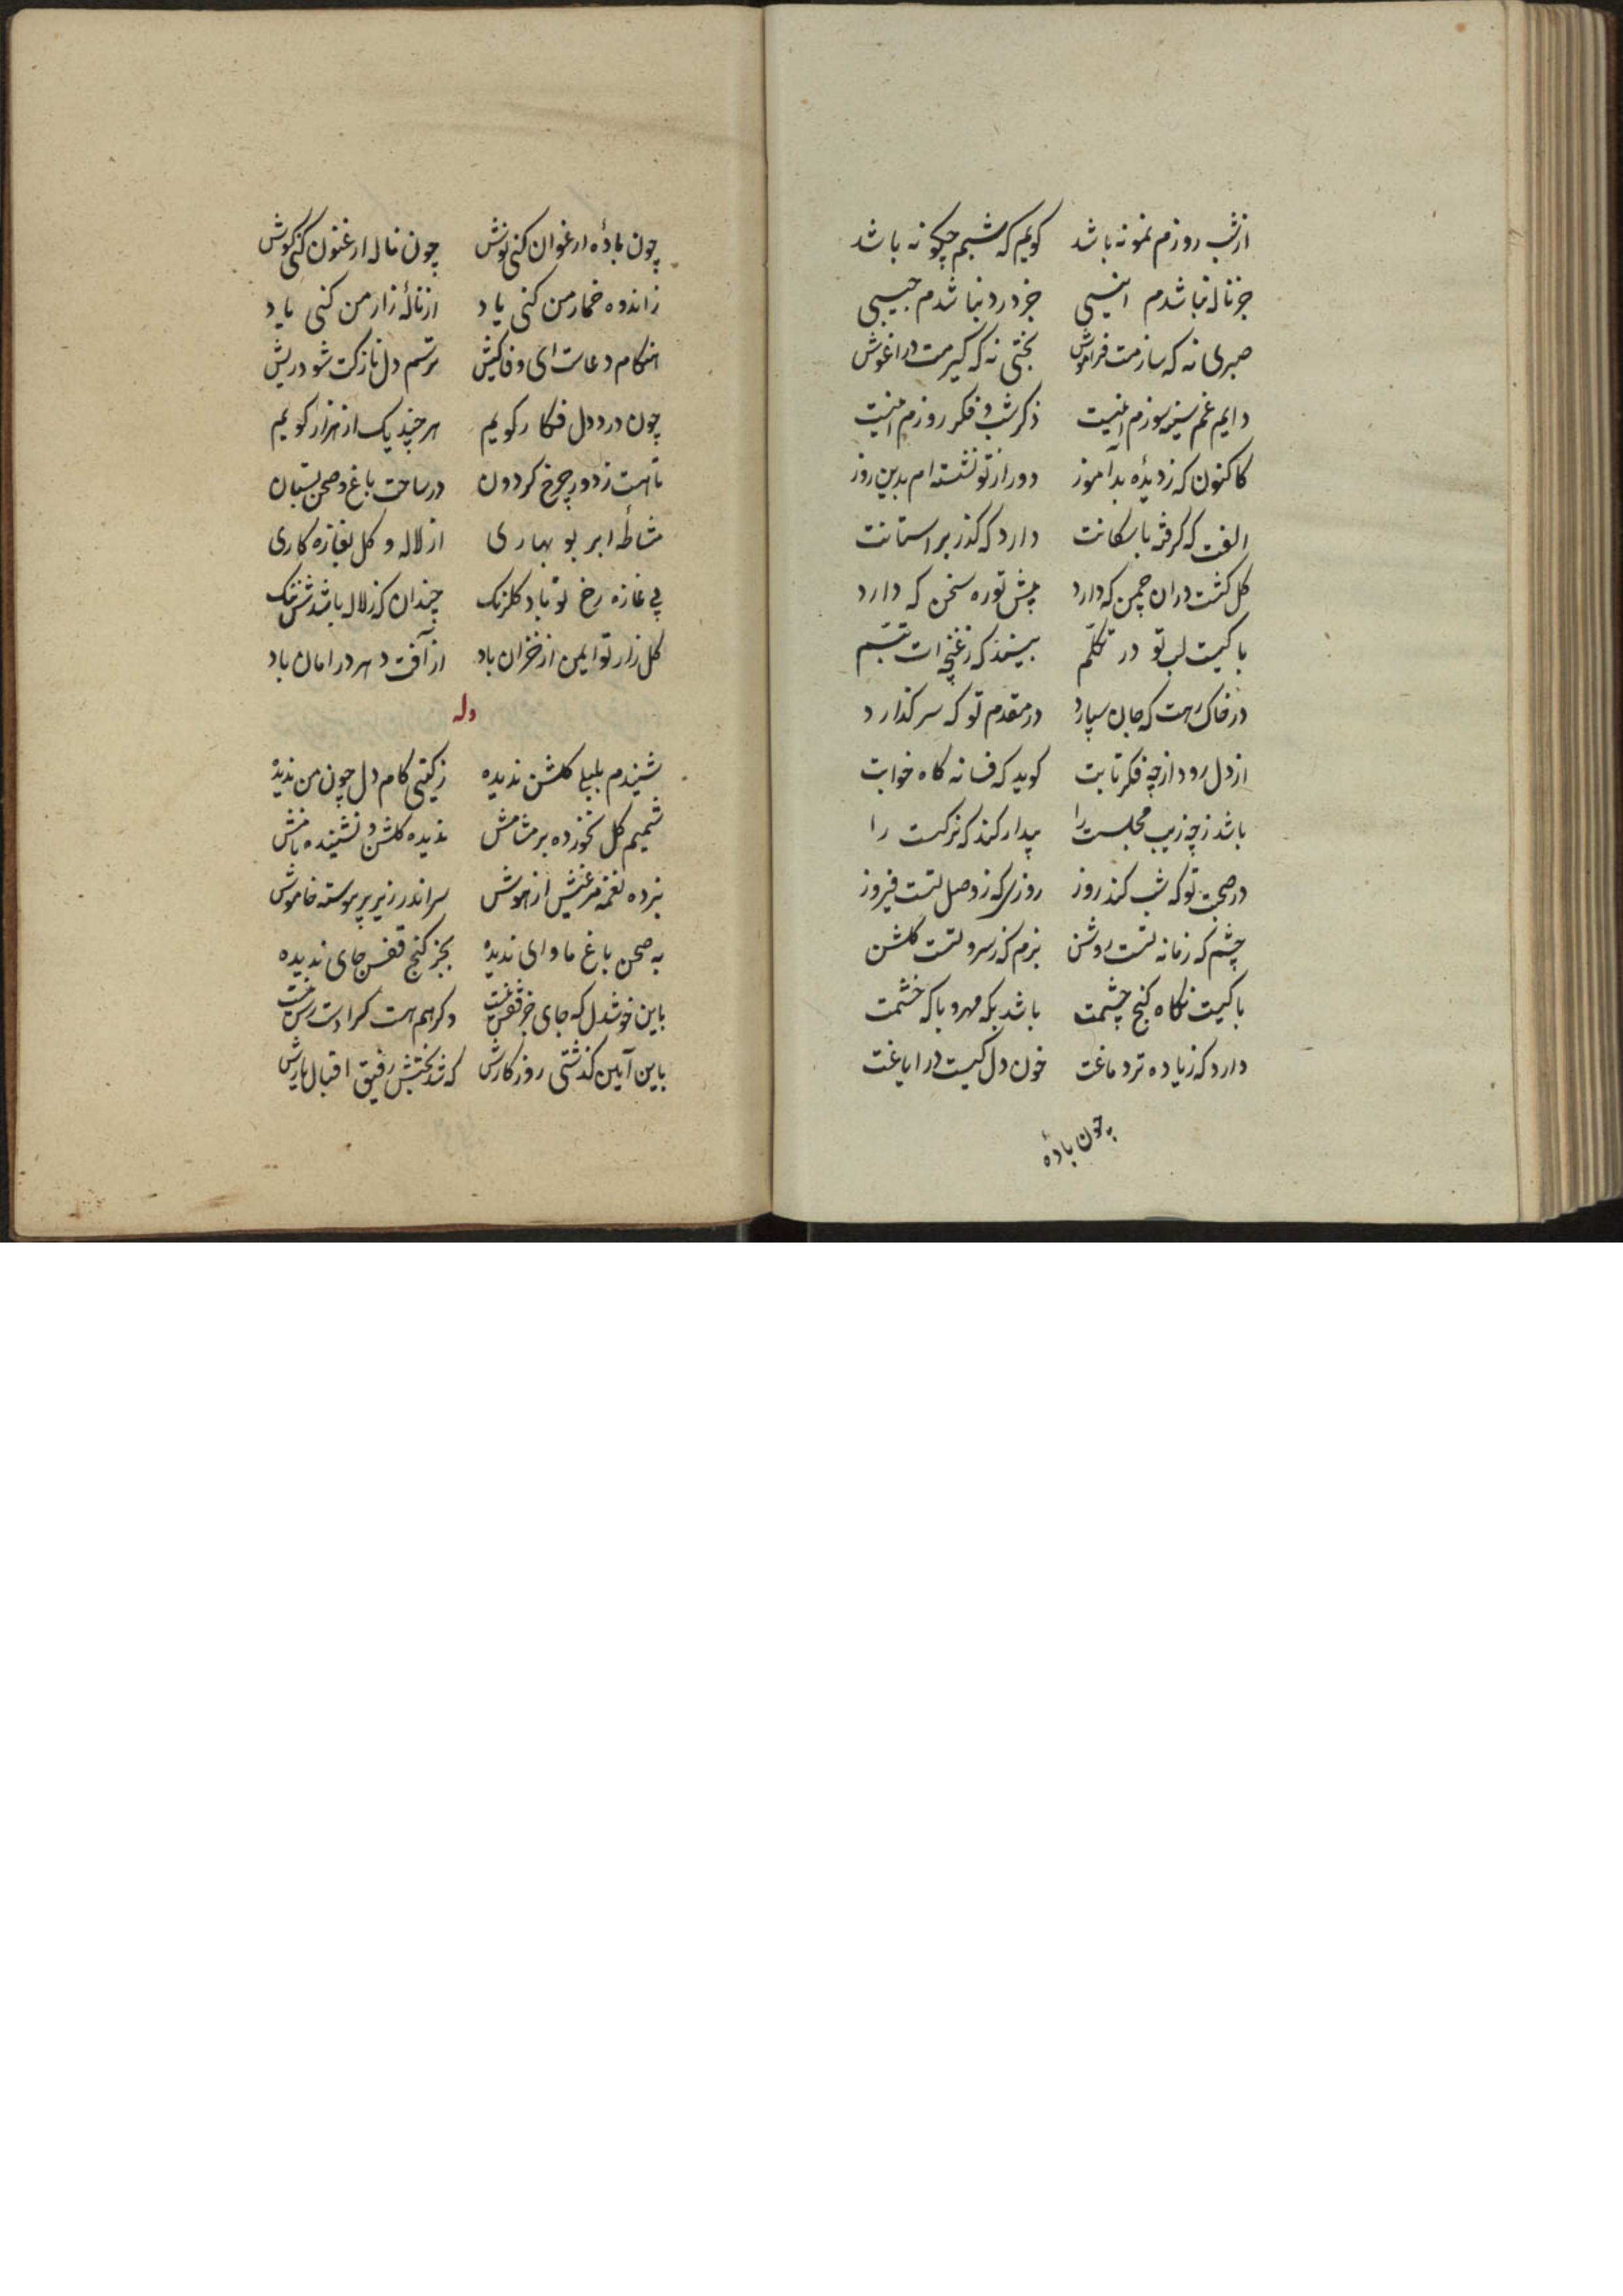 ازشب روزم نمونه باشد کویم که شبم چکونه باشد
جز ناله نباشدم انیسی جز درد نباشدم حبیبی
صبری نه که سازمت فراموش بختی نه که کیرمت در اغوش
دایم غم سینه سوزم اینست ذکر شب و فکر روزم اینست
کاکنون که زدیدهٔ بدآموز دور از تو نشسته ام بدین روز
الفت که کرفته باسکانت دارد که کذر بر استانت
کل کشت دران چمن که دارد پیش تو ره سخن که دارد
با کیست لب تو در تکلّم بینند که زغنچه ات تبسّم
در خاک رهت که جان سپارد در مقدم تو که سر کذارد
از دل رود از چه فکر تابت کوید که فسانه کاه خوابت
باشد زچه زیب مجلست را بیدار کند که نرکست را
در صحبت تو که شب کند روز روزی که زوصل تست فیروز
چشم که زمانه تست روشن بزم که زسرو تست کلشن
با کیست نکاه کنج چشمت باشد بکه مهر و با که خشمت
دارد که زیاده تر دماغت خون دل کیست در ایاغت
چون بادهٔ
چون بادهٔ ارغوان کنی نوش چون ناله ارغنون کنی کوش
زاندوه خمار من کنی یاد ازنالهٔ زار من کنی یاد
هنکام دعاست ای وفا کیش ترسم دل نازکت شود ریش
چون درد دل فکار کویم هر چند یک از هزار کویم
تا هست زدور چرخ کردون در ساحت باغ و صحن بستان
مشاطهٔ ابر نو بهاری از لاله و کل بغازه کاری
پی غازه رخ تو باد کلرنک چندان که زلاله باشدش ننک
کل زار تو ایمن از خزان باد از آفت دهر در امان باد
وله
شنیدم بلبلی کلشن ندیده زکیتی کام دل چون من ندیده
شمیم کل نخورده بر مشامش ندیده کلشن و نشنیده نامش
نبرده نغمه مرغیش از هوش سر اندر زیر پر پیوسته خاموش
به صحن باغ ماوای ندیده بجز کنج قفس جای ندیده
باین خوشدل که جای جز قفس نیست وکر هم هست کس را دسترس نیست
باین آیین کذشتی روزکارش که شد بختش رفیق اقبال یارش